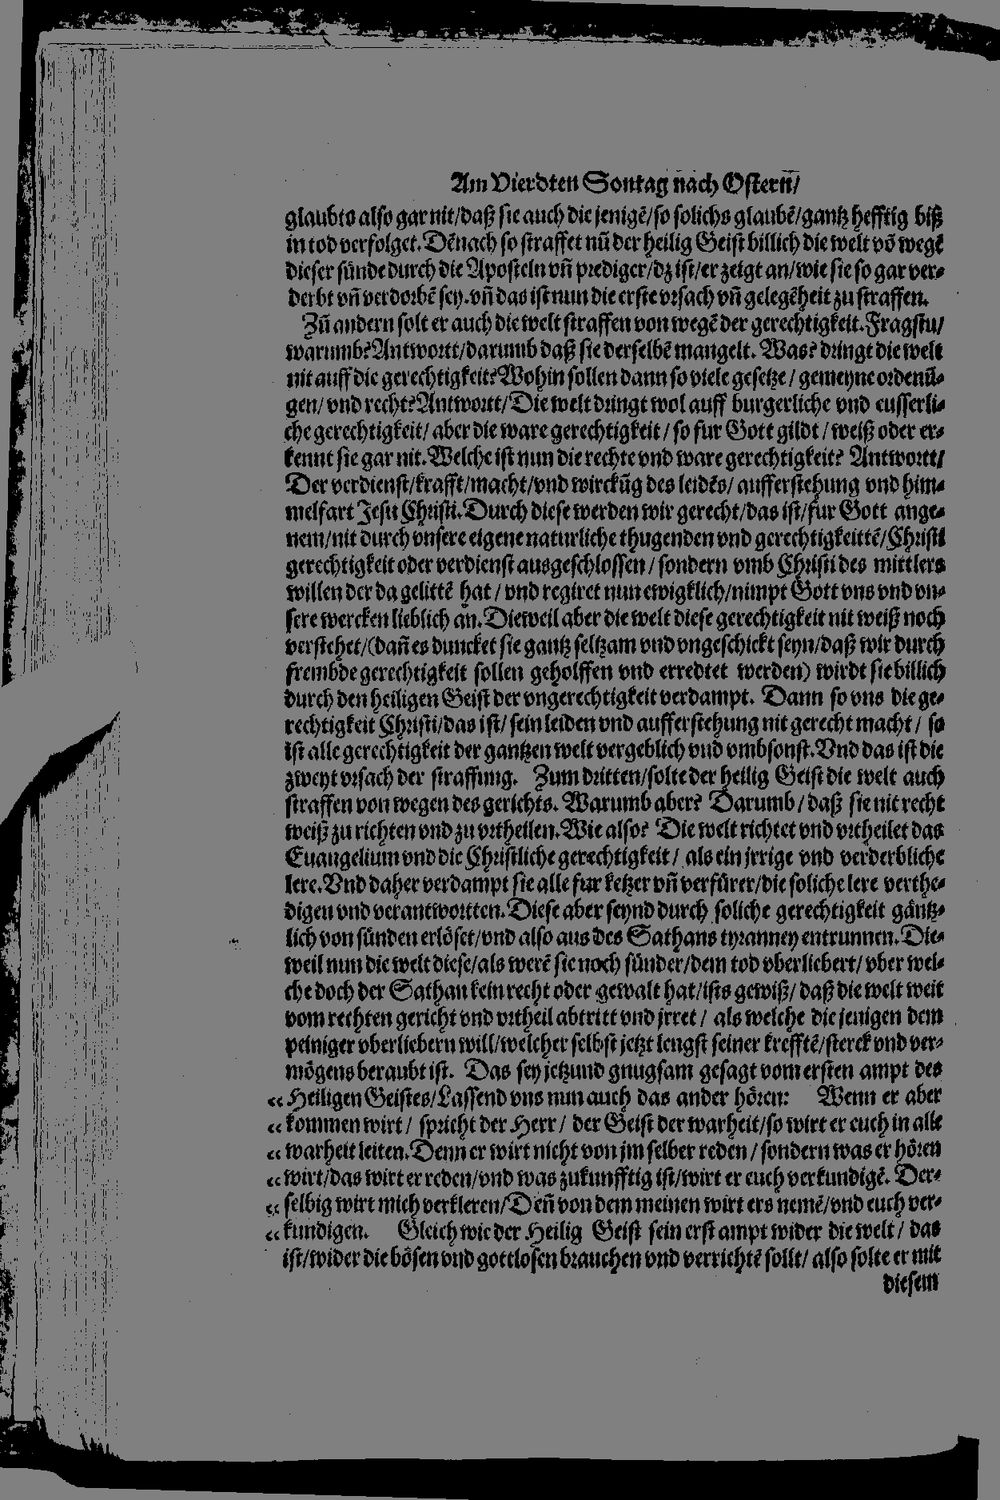 Am Vierdten Sontag nach Ostern̄/
glaubts also gar nit/daß sie auch die jenigē/so solichs glaubē/gantz hefftig biß
in tod verfolget. Dēnach so straffet nū der heilig Geist billich die welt vō wegē
dieser sünde durch die Aposteln vn̄ prediger/dz ist/er zeigt an/wie sie so gar ver⸗
derbt vn̄ verdorbē sey. vn̄ das ist nun die erste vrsach vn̄ gelegēheit zu straffen.
Zū andern solt er auch die welt straffen von wegē der gerechtigkeit. Fragstu/
warumb? Antwortt/darumb daß sie derselbē mangelt. Was? dringt die welt
nit auff die gerechtigkeit? Wohin sollen dann so viele gesetze / gemeyne ordenū⸗
gen/ vnd recht? Antwortt/Die welt dringt wol auff burgerliche vnd eusserli⸗
che gerechtigkeit/ aber die ware gerechtigkeit / so fur Gott gildt / weiß oder er⸗
kennt sie gar nit. Welche ist nun die rechte vnd ware gerechtigkeit? Antwortt/
Der verdienst/krafft/macht/vnd wirckūg des leidēs/ aufferstehung vnd him⸗
melfart Jesu Christi. Durch diese werden wir gerecht/das ist/fur Gott ange⸗
nem/nit durch vnsere eigene naturliche thugenden vnd gerechtigkeittē/Christi
gerechtigkeit oder verdienst ausgeschlossen / sondern vmb Christi des mittlers
willen der da gelittē hat / vnd regiret nun ewigklich/nimpt Gott vns vnd vn⸗
sere wercken lieblich an. Dieweil aber die welt diese gerechtigkeit nit weiß noch
verstehet/(dan̄ es duncket sie gantz seltzam vnd vngeschickt seyn/daß wir durch
frembde gerechtigkeit sollen geholffen vnd erredtet werden) wirdt sie billich
durch den heiligen Geist der vngerechtigkeit verdampt. Dann so vns die ge⸗
rechtigkeit Christi/das ist/ sein leiden vnd aufferstehung nit gerecht macht / so
ist alle gerechtigkeit der gantzen welt vergeblich vnd vmbsonst. Vnd das ist die
zweyt vrsach der straffung. Zum dritten/solte der heilig Geist die welt auch
straffen von wegen des gerichts. Warumb aber? Darumb / daß sie nit recht
weiß zu richten vnd zu vrtheilen. Wie also? Die welt richtet vnd vrtheilet das
Euangelium vnd die Christliche gerechtigkeit / als ein jrrige vnd verderbliche
lere. Vnd daher verdampt sie alle fur ketzer vn̄ verfürer/die soliche lere verthe⸗
digen vnd verantwortten. Diese aber seynd durch soliche gerechtigkeit gäntz⸗
lich von sünden erlöset/vnd also aus des Sathans tyranney entrunnen. Die⸗
weil nun die welt diese/als werē sie noch sünder/dem tod vberliebert/ vber wel⸗
che doch der Sathan kein recht oder gewalt hat/ists gewiß/ daß die welt weit
vom rechten gericht vnd vrtheil abtritt vnd jrret / als welche die jenigen dem
peiniger vberliebern will/welcher selbst jetzt lengst seiner krefftē/sterck vnd ver⸗
mögens beraubt ist. Das sey jetzund gnugsam gesagt vom ersten ampt des
« Heiligen Geistes/Lassend vns nun auch das ander hören: Wenn er aber
« kommen wirt / spricht der Herr / der Geist der warheit/so wirt er euch in alle
« warheit leiten. Denn er wirt nicht von jm selber reden / sondern was er hören
« wirt/das wirt er reden/vnd was zukunfftig ist/wirt er euch verkundigē. Der⸗
« selbig wirt mich verkleren/Den̄ von dem meinen wirt ers nemē/vnd euch ver⸗
« kundigen. Gleich wie der Heilig Geist sein erst ampt wider die welt / das
ist/wider die bösen vnd gottlosen brauchen vnd verrichtē sollt/ also solte er mit
diesem